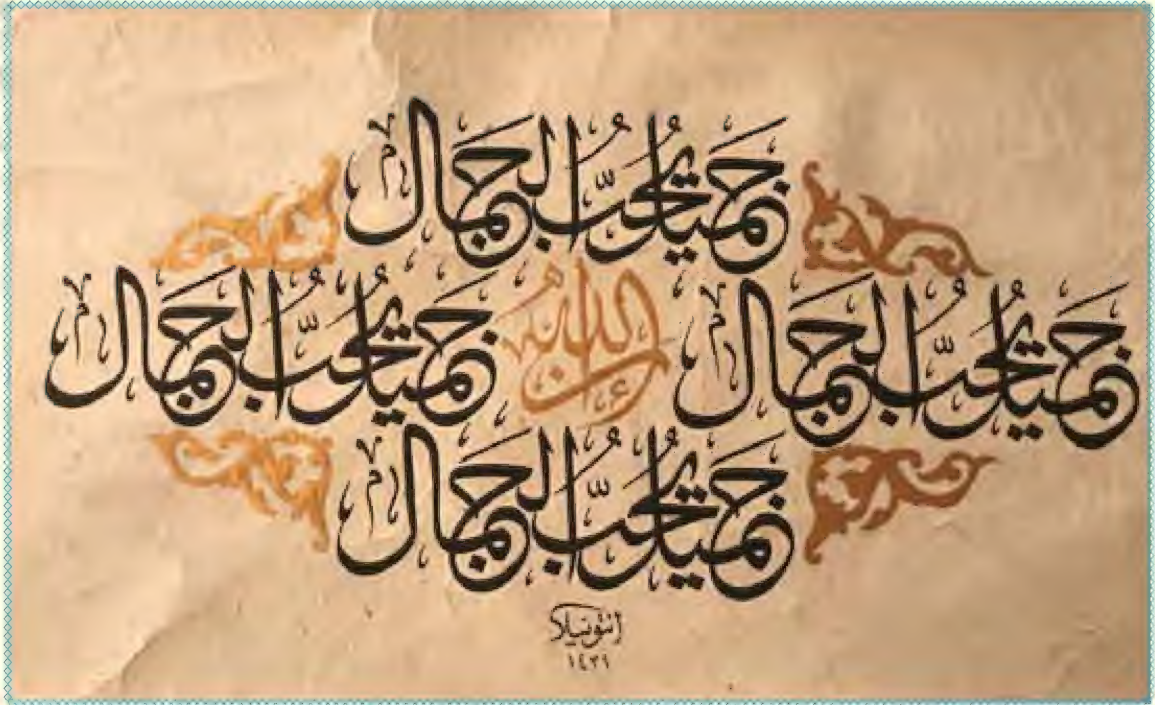 جميل يحب الجمال
جميل يحب الجمال إن الله جميل يحب الجمال
جميل يحب الجمال
أنتونيلا
١٤٣١